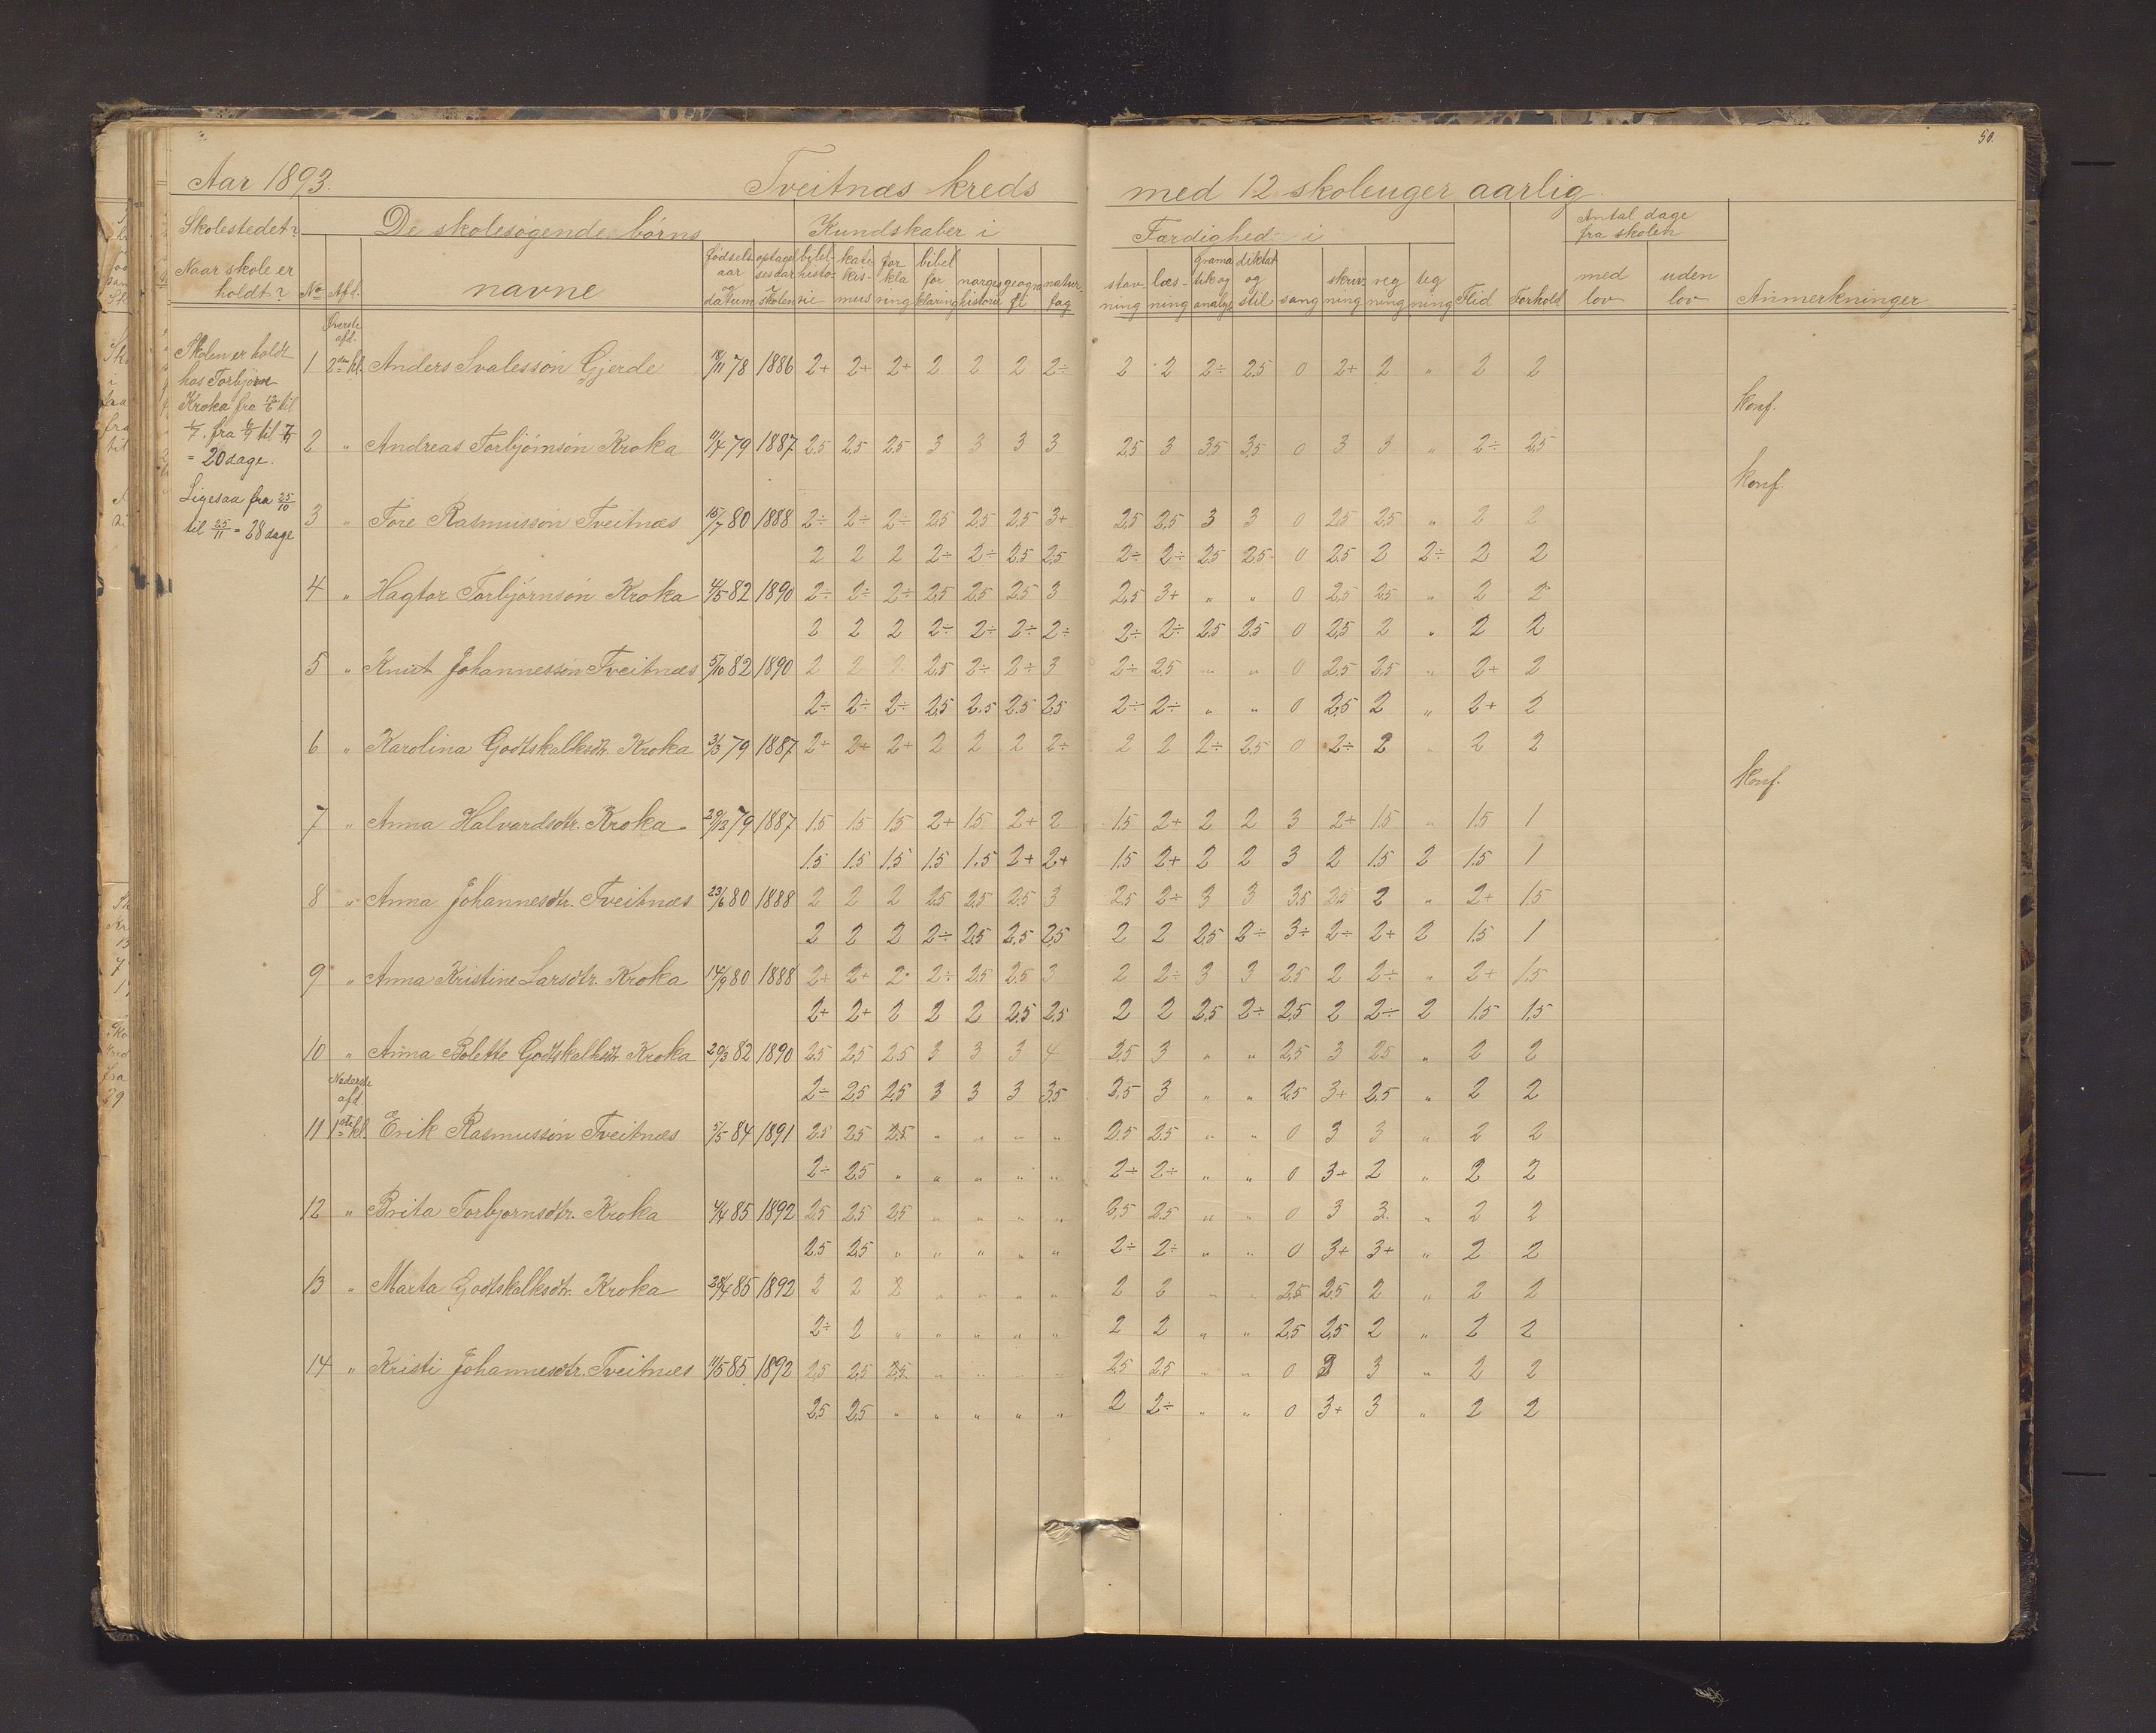 50.
Aar 1893. Tveitnæs kreds med 12 skoleuger aarlig.
Skolestedet? De skolesøgende børns Kundskaber i Færdighed i Antal dage fra skolen
Naar skole er holdt? No Afd. navne fødsels aar og datum optagelsesaar i skolen bibelhistorie katekismus forklaring bibelforklaring norgeshistorie geografi naturfag stavning læsning gramatik og analyse diktat og stil sang skrivning regning tegning Flid Forhold med lov uden lov Anmerkninger
Skolen er holdt
hos Torbjørn
Kroka fra 12/6 til
1/7. fra 6/9 til 7/9
= 20 dage.
Ligesaa fra 25/10
til 25/11 = 28 dage
Øverste afd.
1 2den kl. Anders Svalesson Gjerde 18/11 78 1886 2+ 2+ 2+ 2 2 2 2÷ 2 2 2÷ 2,5 0 2+ 2 " 2 2
konf.
2 " Andreas Torbjørnson Kroka 11/4 79 1887 2,5 2,5 2,5 3 3 3 3 2,5 3 3,5 3,5 0 3 3 " 2÷ 2,5
konf.
3 " Tore Rasmusson Tveitnæs 16/7 80 1888 2÷ 2÷ 2÷ 2,5 2,5 2,5 3+ 2,5 2,5 3 3 0 2,5 2,5 " 2 2
2 2 2 2÷ 2÷ 2,5 2,5 2÷ 2÷ 2,5 2,5 0 2,5 2 2÷ 2 2
4 " Hagtor Torbjørnson Kroka 4/5 82 1890 2÷ 2÷ 2÷ 2,5 2,5 2,5 3 2,5 3+ " " 0 2,5 2,5 " 2 2
2 2 2 2÷ 2÷ 2÷ 2÷ 2÷ 2÷ 2,5 2,5 0 2,5 2 " 2 2
5 " Knut Johannesson Tveitnæs 5/10 82 1890 2 2 2 2,5 2÷ 2÷ 3 2÷ 2,5 " " 0 2,5 2,5 " 2+ 2
2÷ 2÷ 2÷ 2,5 2,5 2,5 2,5 2÷ 2÷ " " 0 2,5 2 " 2+ 2
6 " Karolina Godtskalksdtr. Kroka 3/3 79 1887 2+ 2+ 2+ 2 2 2 2÷ 2 2 2÷ 2,5 0 2÷ 2 " 2 2
konf.
7 " Anna Halvardsdtr. Kroka 29/12 79 1887 1,5 1,5 1,5 2+ 1,5 2+ 2 1,5 2+ 2 2 3 2+ 1,5 " 1,5 1
1,5 1,5 1,5 1,5 1,5 2+ 2+ 1,5 2+ 2 2 3 2 1,5 2 1,5 1
8 " Anna Johannesdtr. Tveitnæs 23/6 80 1888 2 2 2 2,5 2,5 2,5 3 2,5 2÷ 3 3 3,5 2,5 2 " 2+ 1,5
2 2 2 2÷ 2,5 2,5 2,5 2 2 2,5 2÷ 3÷ 2÷ 2+ 2 1,5 1
9 " Anna Kristine Larsdtr. Kroka 14/9 80 1888 2+ 2+ 2 2÷ 2,5 2,5 3 2 2÷ 3 3 2,5 2 2÷ " 2+ 1,5
2+ 2+ 2 2 2 2,5 2,5 2 2 2,5 2÷ 2,5 2 2÷ 2 1,5 1,5
10 " Anna Bolette Godtskalksdtr. Kroka 29/3 82 1890 2,5 2,5 2,5 3 3 3 4 2,5 3 " " 2,5 3 2,5 " 2 2
2÷ 2,5 2,5 3 3 3 3,5 2,5 3 " " 2,5 3+ 2,5 " 2 2
Nederste afd.
11 1ste kl. Erik Rasmusson Tveitnæs 5/5 84 1891 2,5 2,5 2,5 " " " " 2,5 2,5 " " 0 3 3 " 2 2
2÷ 2,5 " " " " " 2÷ 2÷ " " 0 3+ 2 " 2 2
12 " Brita Torbjørnsdtr. Kroka 4/4 85 1892 2,5 2,5 2,5 " " " " 2,5 2,5 " " 0 3 3 " 2 2
2,5 2,5 " " " " " 2÷ 2÷ " " 0 3+ 3+ " 2 2
13 " Marta Godtskalksdtr. Kroka 28/4 85 1892 2 2 2 " " " " 2 2 " " 2,5 2,5 2 " 2 2
2÷ 2 " " " " " 2 2 " " 2,5 2,5 2 " 2 2
14 " Kristi Johannesdtr. Tveitnæs 11/5 85 1892 2,5 2,5 2,5 " " " " 2,5 2,5 " " 0 3 3 " 2 2
2,5 2,5 " " " " " 2 2÷ " " 0 3+ 3 " 2 2